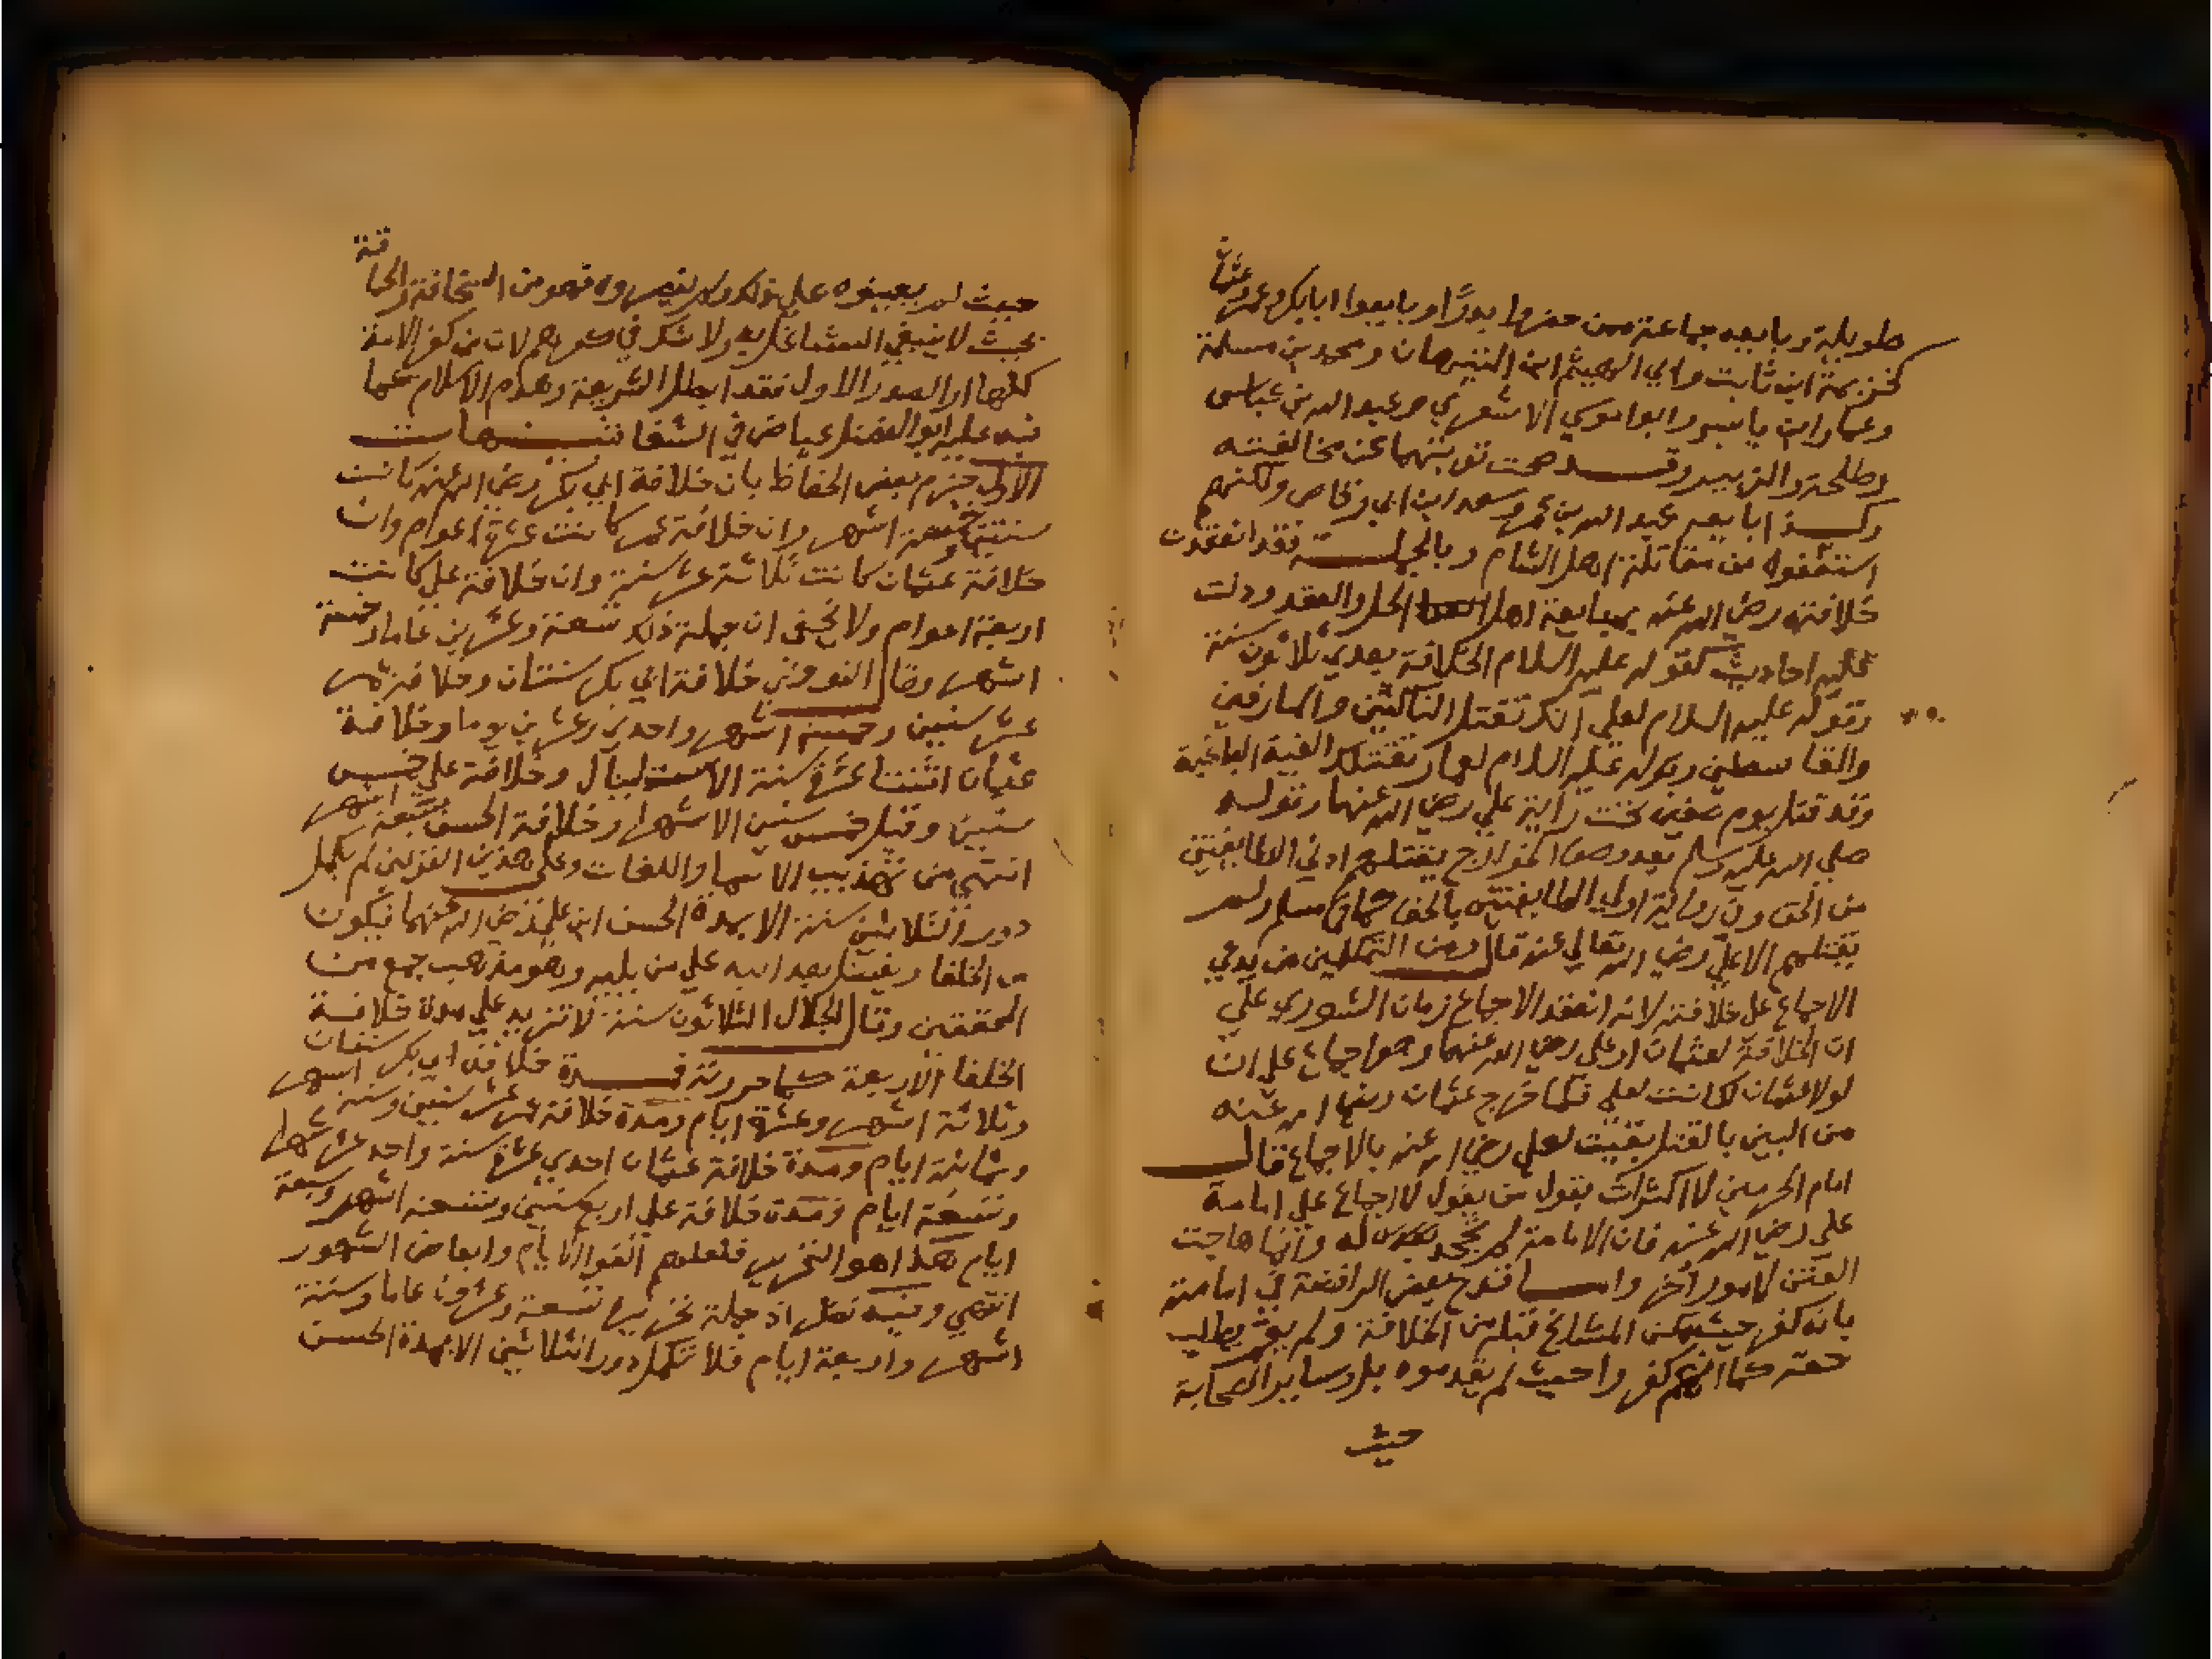 طويلة وبايعه جماعة ممن حضروا بدرا وبايعوا ابابكر وعمر وعثمان
كخزيمة ابن ثابت وابي الهيثم ابن التيهان ومحمد بن مسلمة
وعمار ابن ياسر وابو موسي الاشعري وعبد الله بن عباس
وطلحة والزبير وقد صحت توبتهما عن مخالفته
وكذا بايعه عبد الله بن عمر وسعد ابن ابي وقاص ولكنهم
استعفوه من مقاتلة اهل الشام وبالجملة فقد انعقدت
خلافته رضي الله عنه بمبايعة اهل الحل والعقد ودلت
عليه احاديث كقوله عليه السلام الخلافة بعدي ثلاثون سنة
وقوله عليه السلام لعلي انك تقتل الناكثين والمارقين
والقاسطين وقوله عليه السلام لعمار تقتلك الفية الباغية
وقد قتل يوم صفين تحت راية علي رضي الله عنهما وقوله
صلي الله عليه وسلم بعد وصف الخوارج يقتلهم ادني الطايفتين
من الحق وفي رواية اولي الطايفتين بالحق كما في مسلم ولم
يقتلهم الا علي رضي الله تعالي عنه قال ومن المتكلمين من يدعي
الاجماع على خلافته لانه انعقد الاجماع زمان الشوري علي
ان الخلافة لعثمان او علي رضي الله عنهما وهو اجماع علي ان
لولا عثمان لكانت لعلي فلما خرج عثمان رضي الله عنه
من البين بالقتل بقيت لعلي رضي الله عنه بالاجماع قال
امام الحرمين لا اكتراث بقول من يقول لا اجماع علي امامة
علي رضي الله عنه فان الامامة لم تجحد له وانما هاجت
الفتن لامور اخر واما قدح بعض الرافضة في امامته
بانه كفر حيث مكن المشايخ قبله من الخلافة ولم يطلب
حقه كما انهم كفروا حيث لم يقدموه بل وساير الصحابة
حيث
حيث لم يعينوه علي ذلك ولم ينصروه فهو من السخافة والحماقة
بحيث لا ينبغي التشاغل به ولا شك في كفرهم لان من كفر الامة
كلها او الصدر الاول فقد ابطل الشريعة وهدم الاسلام كما
نبه عليه ابو الفضل عياض في الشفا تنبيهات
الاول جزم بعض الحفاظ بان خلافة ابي بكر رضي الله عنه كانت
سنتين اشهر وان خلافة عمر كانت عشرة اعوام وان
خلافة عثمان كانت ثلاثة عشر سنة وان خلافة علي كانت
اربعة اعوام ولا يخفى ان جملة ذلك تسعة وعشرين عاما وخمسة
اشهر وقال النووي خلافة ابي بكر سنتان وخلافة عمر
عشر سنين وخمسة اشهر واحدي وعشرين يوما وخلافة
عثمان اثنتا عشرة سنة الا ست ليال وخلافة علي خمس
سنين وقيل خمس سنين الا شهرا وخلافة الحسن سبعة اشهر
انتهي من تهذيب الاسما واللغات وعلى هذين القولين لم يكمل
دور الثلاثين سنة الا بمدة الحسن ابن علي رضي الله عنهما فيكون
من الخلفا ويفضل بعد ابيه علي من يليه وهو مذهب جمع من
المحققين وقال الجلال الثلاثون سنة لا تزيد علي مدة خلافة
الخلفا الاربعة كما حررته فمدة خلافة ابي بكر سنتان
وثلاثة اشهر وعشرة ايام ومدة خلافة عمر عشر سنين وستة اشهر
وثمانية ايام ومدة خلافة عثمان احدي عشرة سنة واحد عشر شهرا
وتسعة ايام ومدة خلافة علي اربع سنين وتسعة اشهر وسبعة
ايام هذا هو التحرير فلعلهم الغوا الايام وابعاض الشهور
انتهي وفيه نظر اذ جملة تحريره تسعة وعشرون عاما وستة
اشهر واربعة ايام فلا تكمل دور الثلاثين الا بمدة الحسن